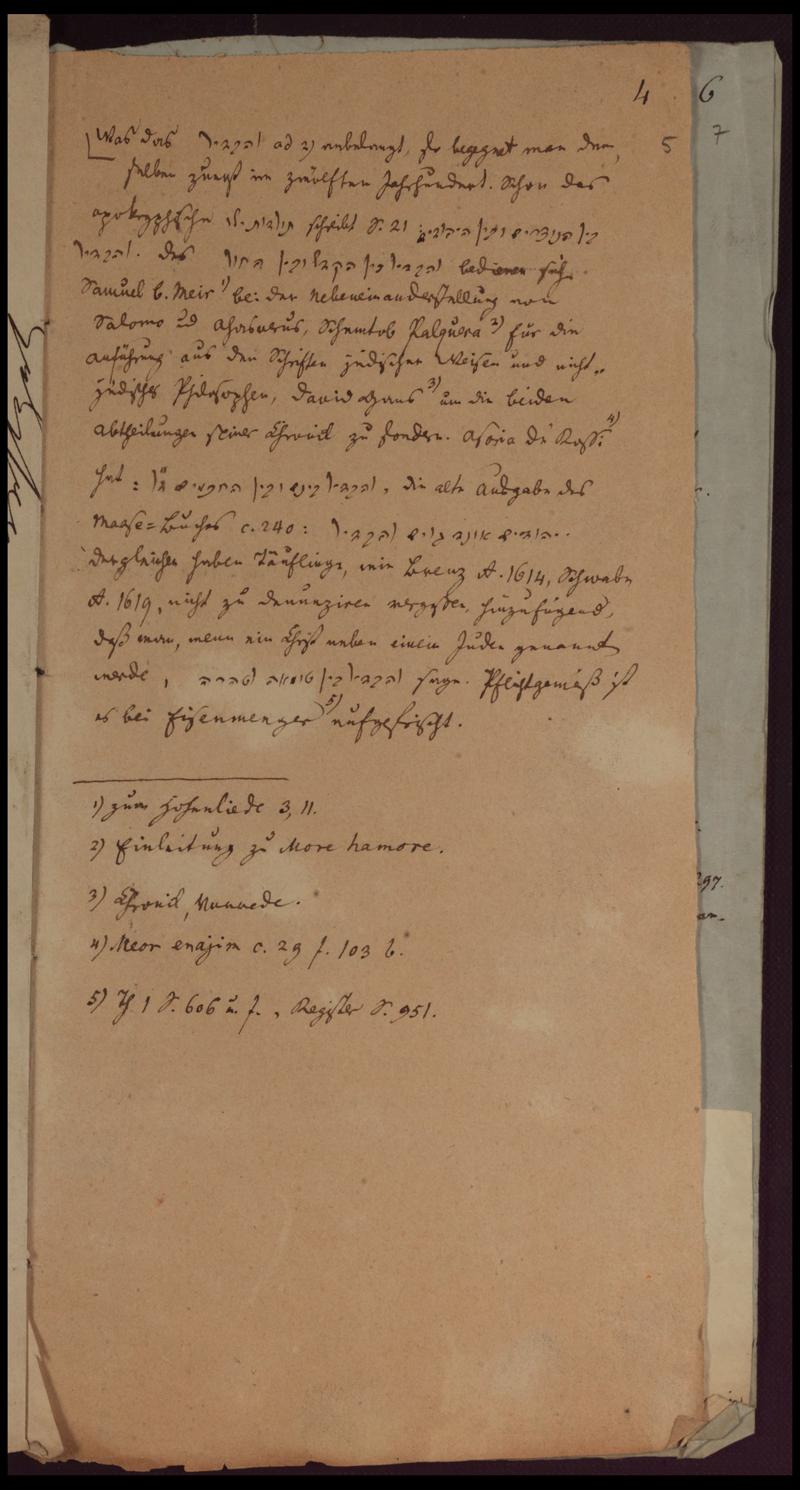 4 6
5 7
Was das להבדיל ad 2) anbelangt, so begegnet man dem„
selben zuerst im zwölften Jahrhundert. Schon das
apokryphische schreibt S. 21 בין הנוצרים ובין היהודים
להבדיל. Des להבדיל בין הקדש ובין החול bedienen sich
Samuel b. Meir 1) bei der Nebeneinanderstellung von
Salomo und Ahasverus, Schemtob Palquera 2) für die
Anführung aus den Schriften jüdischer Weisen und nicht„
jüdischer Philosophen, David Gans 3) um die beiden
Abtheilungen seiner Chronik zu sondern. Asaria de Rossi 4)
hat: להבדיל בינם ובין החכמים, die alte Ausgabe des
Maase=Buches c. 240: יהודים אונד גוים להבדיל.
Dergleichen haben Täuflinge, wie Brenz A. 1614, Schwabe
A. 1619, nicht zu denunziren vergessen, hinzufügend,
daß man, wenn ein Christ neben einem Juden genannt
werde, להבדיל בין טומאה לטהרה sage. Pflichtgemäß ist
es bei Eisenmenger 5) aufgefrischt.
1) zum Hohenliede 3, 11.
2) Einleitung zu More hamore.
3) Chronik, Vorrede.
4) Meor enajim c. 29 f. 103 b.
5) Th 1 S. 606 u. f., Register S. 951.
297.